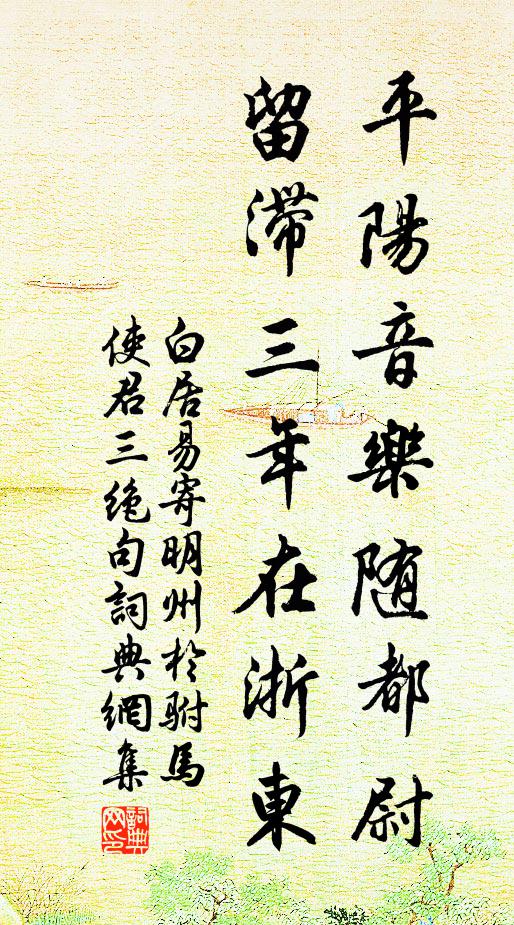 平陽音樂随都尉
留滯三年在浙東
白居易寄明州於駙馬
使君三絕句詞典網集
詞典网印